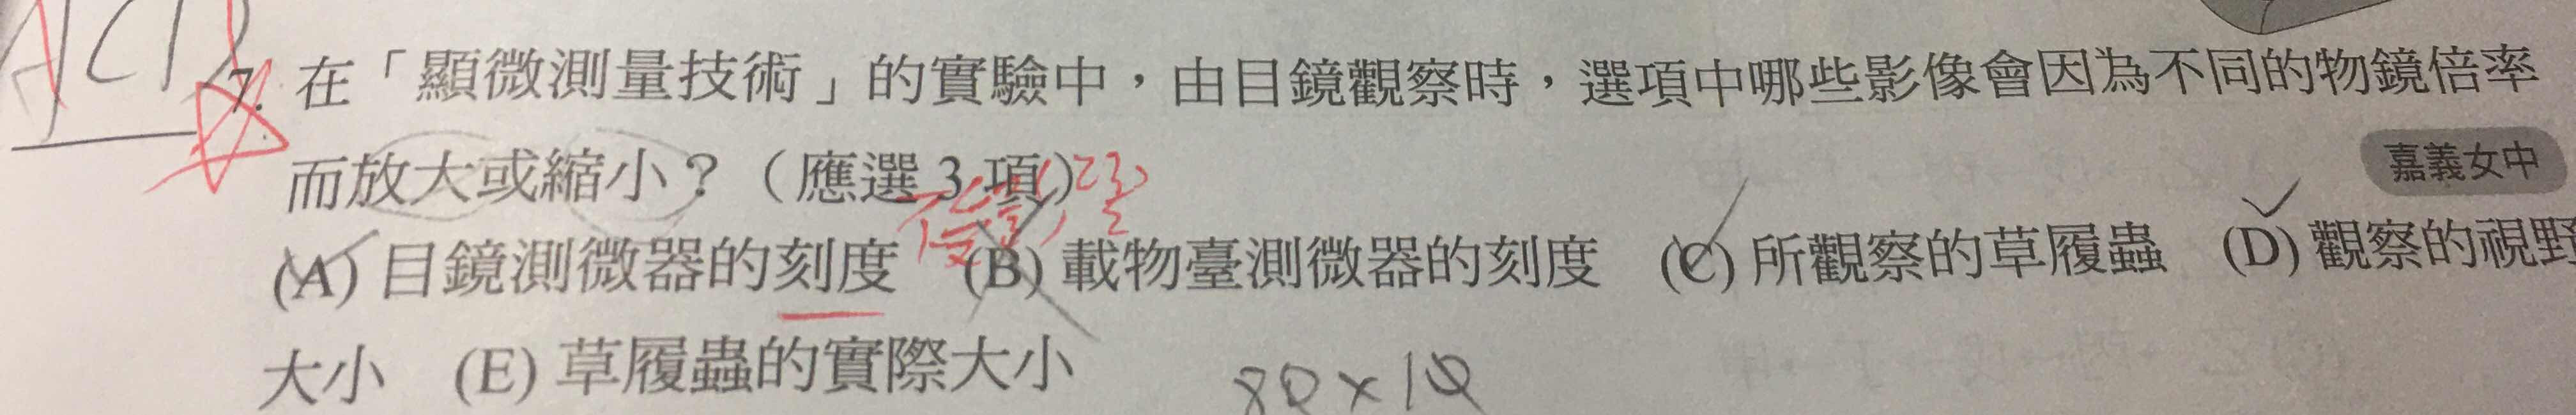 ACD
7. 在「顯微測量技術」的實驗中，由目鏡觀察時，選項中哪些影像會因為不同的物鏡倍率
而放大或縮小？（應選 3 項）
嘉義女中
(A) 目鏡測微器的刻度 (B) 載物臺測微器的刻度 (C) 所觀察的草履蟲 (D) 觀察的視野
大小 (E) 草履蟲的實際大小